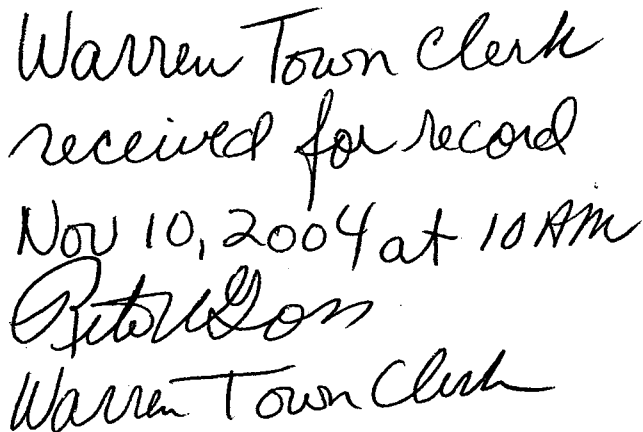 Warren Town Clerk
received for record
Nov 10, 2004 at 10 AM
Reta Goss
Warren Town Clerk